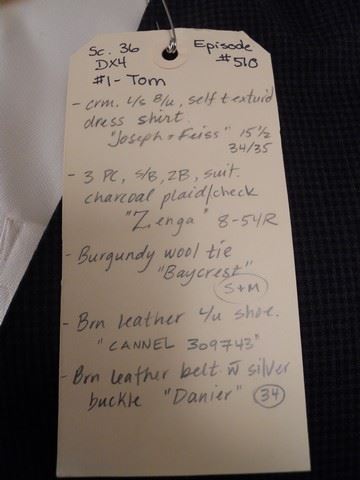 Sc. 36
Episode
DX4
#510
#1 - Tom
- crm. L/s B/u, self texturd
dress shirt.
"Joseph + Feiss" 15½
34/35
- 3 PC, S/B, 2B, suit.
charcoal plaid/check
"Zenga" 8-54R
- Burgundy wool tie
"Baycrest"
S+M
- Brn leather L/u shoe.
"CANNEL 309743"
- Brn leather belt w̄ silver
buckle "Danier" 34